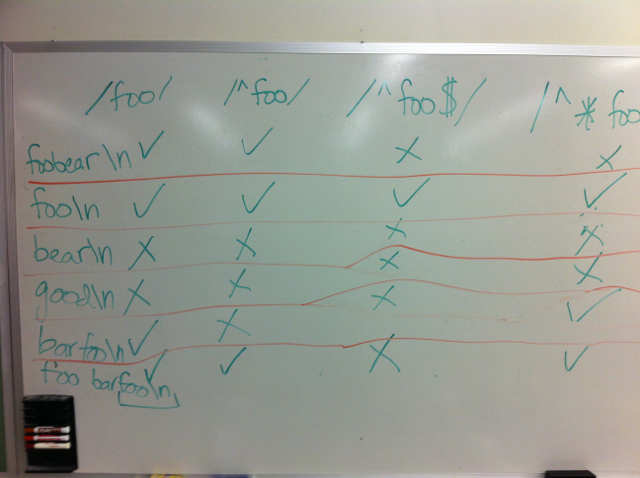 /foo/ /^foo/ /^foo$/ /^*foo
foobear\n ✓ ✓ ✗ ✗
foo\n ✓ ✓ ✓ ✓
bear\n ✗ ✗ ✗ ✗
good\n ✗ ✗ ✗ ✗
barfoo\n ✓ ✗ ✗ ✓
foo barfoo\n ✓ ✓ ✗ ✓